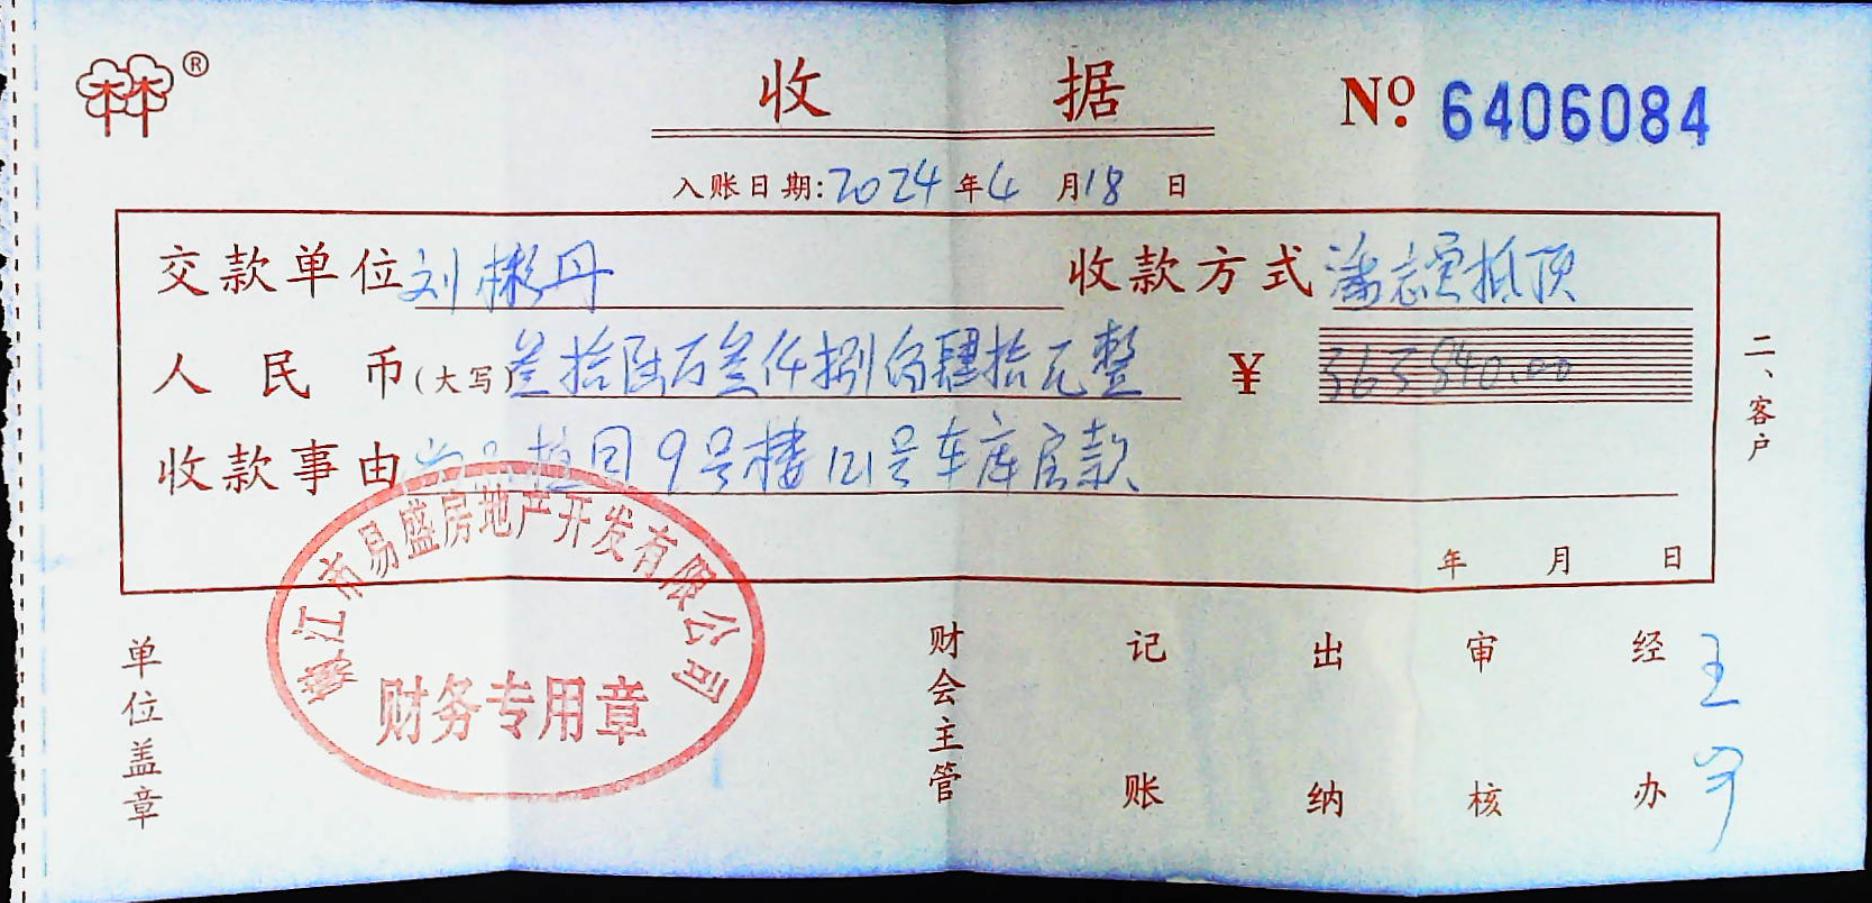 林®
收 据
№ 6406084
入账日期:2024年4月18日
交款单位 刘彬丹 收款方式 潘志强抵顶
人民币(大写)叁拾陆万叁仟捌佰肆拾元整 ¥ 363840.00
收款事由 项目9号楼121号车库房款
年 月 日
二、客户
江市易盛房地产开发有限公司
财务专用章
单位盖章 财会主管 记账 出纳 审核 经办 王